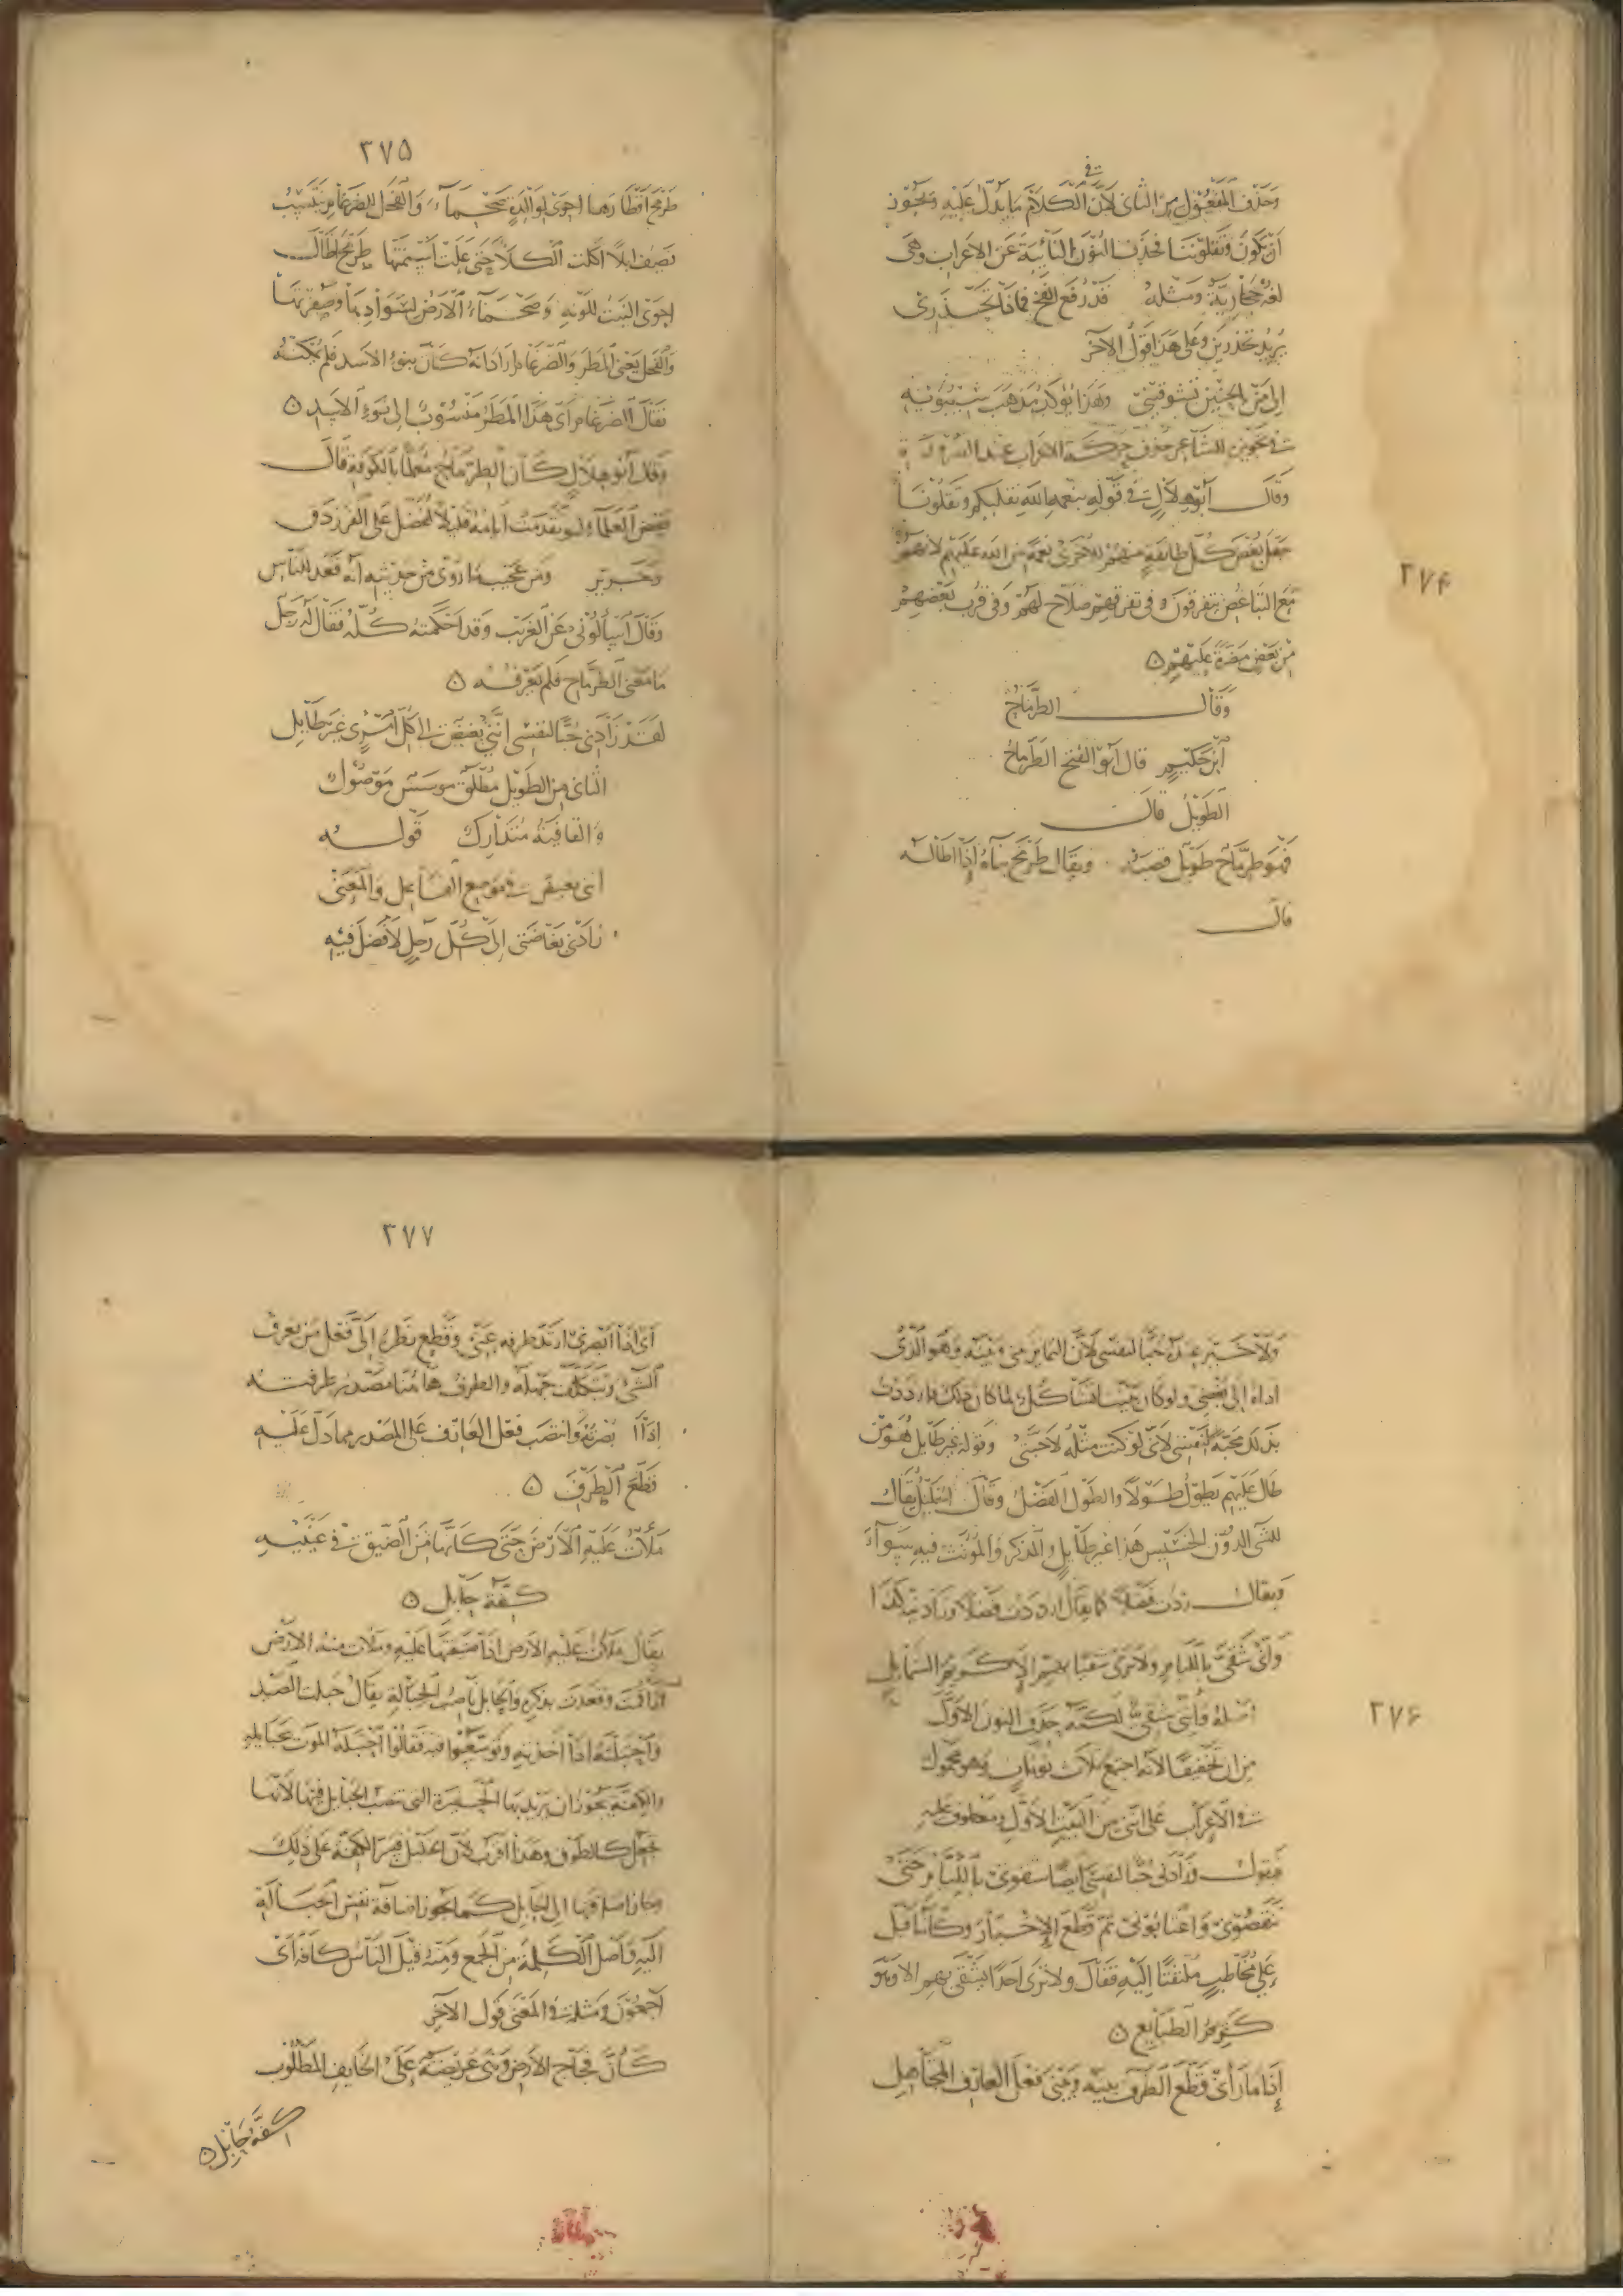 ٢٧٤
في
وحذف المفعول من الثاني لأن الكلام ما يدل عليه ويجوز
أن يكون وتقلوننا فحذف النون النائبة عن الاعراب وهي
لغة حجازية ومثله قد رفع الفخ فماذا تحذري
يريد تحذرين وعلى هذا قول الآخر
وهذا يؤكد مذهب سيبويه
في تجويزه للشاعر حذف حركة الاعراب عند الضرورة
وقال أبو هلال في قوله بنعمة الله نقليكم وتقلونا
جعل بغض كل طائفة منهم للأخرى نعمة من الله عليهم لأنهم
مع التباغض يتفرقون وفي تفرقهم صلاح لهم وفي قرب بعضهم
من بعض مضرة عليهم ه
وقال الطرماح
ابن حكيم قال أبو الفتح الطرماح
الطويل قال
فهو طرماح طويل قصبه ويقال طرمح بناءه إذا أطاله
قال
٢٧٥
طرمح أقطارها أحوى لوالدة صحماء والفحل للضرغام ينتسب
يصف ابلا أكلت الكلأ حتى علت أسنمتها طرمح أطال
أحوى النبت للونه وصحماء الأرض لسوادها وصفرتها
والفحل يعني المطر والضرغام أراد انه كان بنوء الأسد فلم يمكنه
فقال الضرغام أي هذا المطر منسوب إلى نوء الأسد ه
وقال أبو هلال كان الطرماح معلما بالكوفة قال
بعض العلماء لو تقدمت أيامه قليلا لفضل على الفرزدق
وجرير ومن عجيب ما روي من حديثه أنه قعد للناس
وقال اسألوني عن الغريب وقد أحكمته كله فقال له رجل
ما معنى الطرماح فلم يعرفه ه
لقد زادني حبا لنفسي أنني بغيض إلى كل امرئ غير طائل
الثاني من الطويل مطلق مؤسس موصول
والقافية متدارك قوله
أني بغيض في موضع الفاعل والمعنى
زادني بغاضتي إلى كل رجل لا فضل فيه
٢٧٦
ولا خير عنده حبا لنفسي لأن التباين بيني وبينه وهو الذي
أداه إلى بغضي ولو كان بيننا تشاكل لما كان ذلك فازددت
بذلك محبة لنفسي لأني لو كنت مثله لأحبني وقوله غير طائل هو من
طال عليهم يطول طولا والطول الفضل وقال الخليل يقال
للشيء الدون الخسيس هذا غير طائل والمذكر والمؤنث فيه سواء
ويقال زدت فضلا كما يقال ازددت فضلا وزادني كذا
وأني شقي باللئام ولا ترى شقيا بهم إلا كريم الشمائل
أصله فإنني شقي لكنه حذف النون الأولى
من ان تخفيفا لأنه اجتمع ثلاث نونات وهو محمول
في الاعراب على أنني من البيت الأول ومعطوف عليه
فيقول وزادني حبا لنفسي أيضا شقوتي باللئام حتى
تنقصوني واغتابوني ثم قطع الإخبار وكأنه أقبل
على مخاطب ملتفتا إليه فقال ولا ترى أحدا يشقى بهم إلا وهو
كريم الطبايع ه
إذا ما رآني قطع الطرف بينه وبيني فعل العارف المتجاهل
٢٧٧
أي إذا أبصرني ارتد طرفه عني وقطع نظره إلي فعل من يعرف
الشيء ويتكلف جهله والطرف هاهنا مصدر طرفت
إذا أبصرته وانتصب فعل العارف على المصدر مما دل عليه
قطع الطرف ه
ملأت عليه الأرض حتى كأنها من الضيق في عينيه
كفة حابل ه
يقال ملأت عليه الأرض إذا ضيقتها عليه وملأت منه الأرض
إذا قمت وقعدت بذكره والحابل ناصب الحبالة يقال حبلت الصيد
وأحبلته إذا أخذته وتوسعوا فيه فقالوا احتبله الموت بحبايله
والكفة يجوز ان يريد بها الحفيرة التي تنصب الحبايل فيها لأنها
تجعل كالطوف وهذا أقرب لأن الخليل فسر الكفة على ذلك
وجاز اضافتها إلى الحابل كما يجوز اضافة نفس الحبالة
إليه وأصل الكلمة من الجمع ومنه قيل الناس كافة أي
أجمعون ومثله في المعنى قول الآخر
كأن فجاج الأرض وهي عريضة على الخايف المطلوب
كفة حابل ه